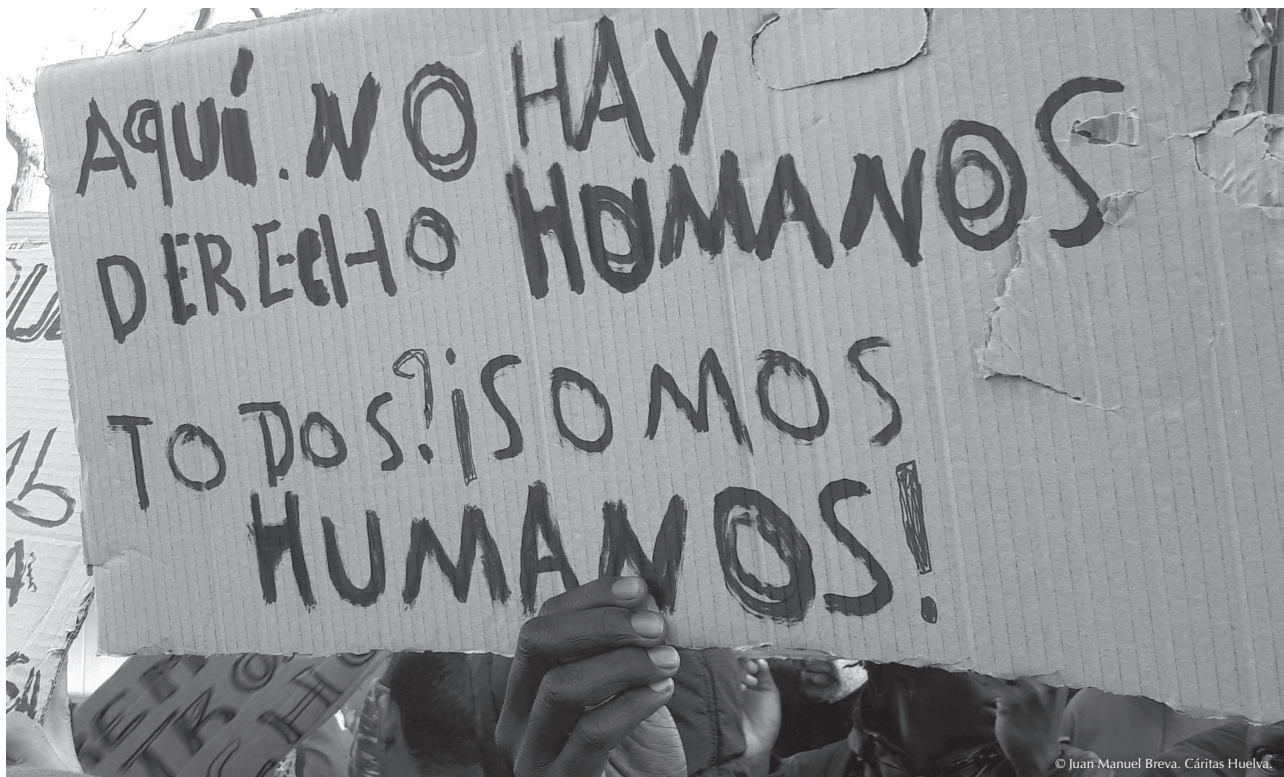 AQUÍ. NO HAY
DERECHO HUMANOS
TODOS? ¡SOMOS
HUMANOS!
© Juan Manuel Breva. Cáritas Huelva.